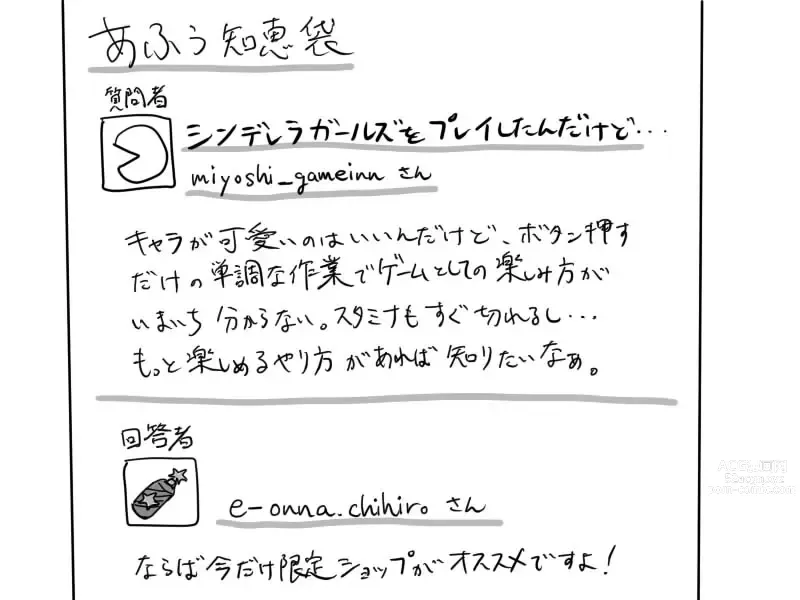 あふぅ知恵袋
質問者
シンデレラガールズをプレイしたんだけど…
miyoshi_gameinn さん
キャラが可愛いのはいいんだけど、ボタン押す
だけの単調な作業でゲームとしての楽しみ方が
いまいち分からない。スタミナもすぐ切れるし…
もっと楽しめるやり方があれば知りたいなぁ。
回答者
e-onna.chihiro さん
ならば今だけ限定ショップがオススメですよ!